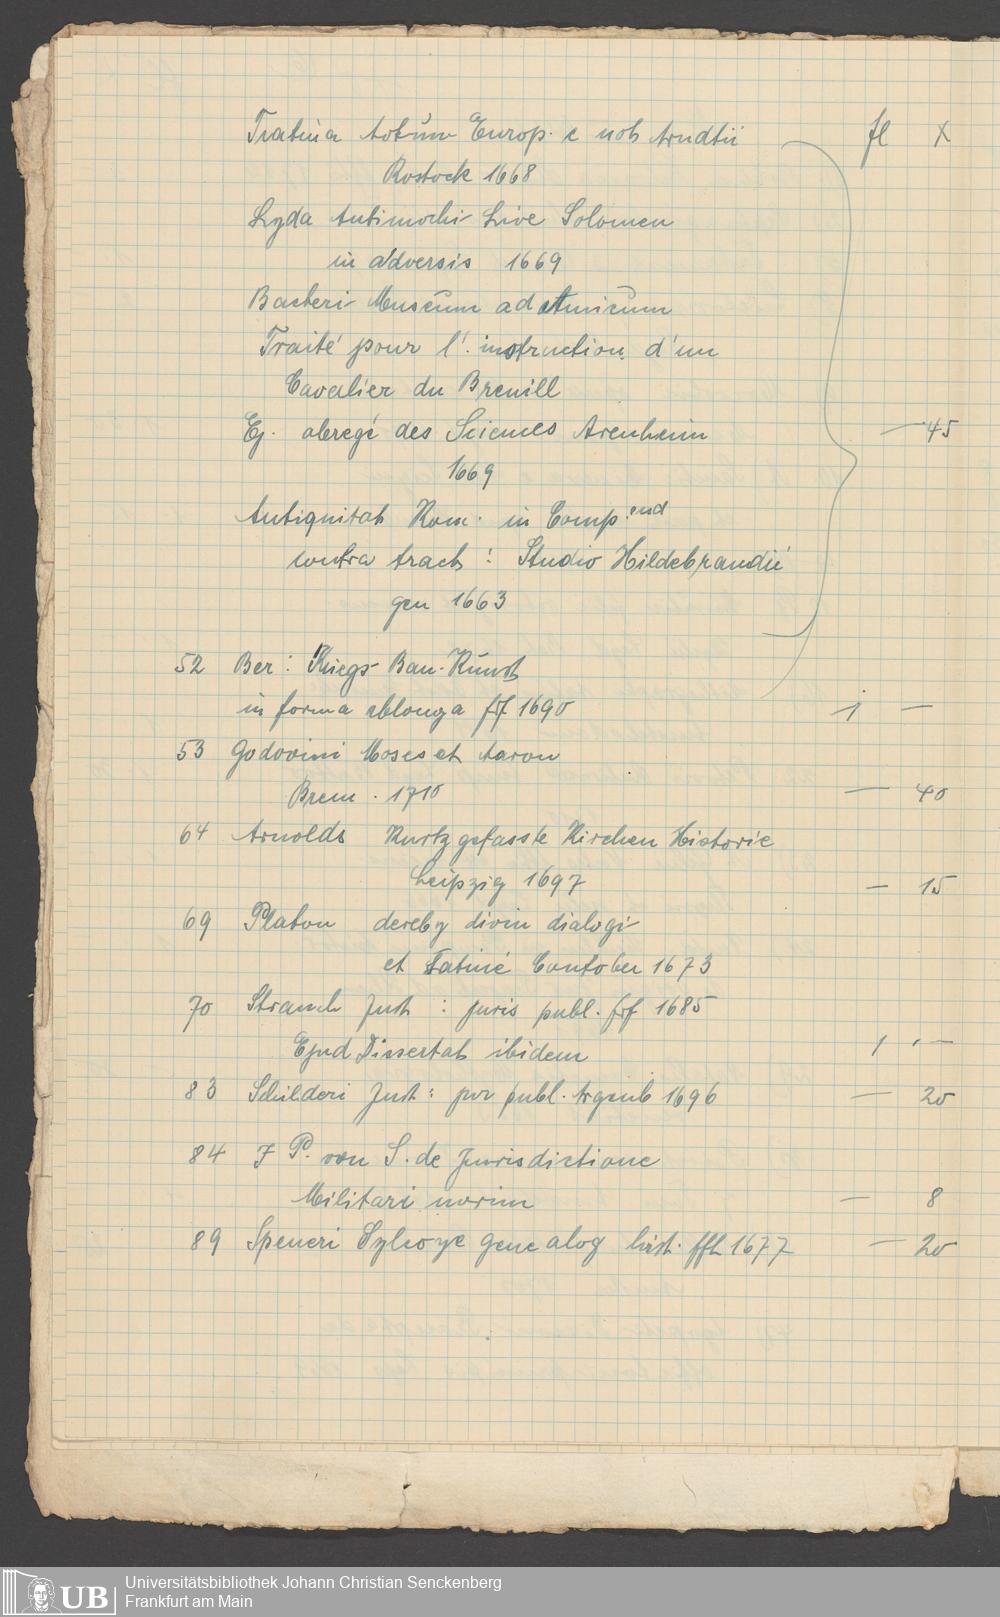 Tratina totum Europ. e not Arndtii fl x
Rostock 1668
Lyda Antimochi Live Solomen
in adversis 1669
Bacteri Museum ad Amicum
Traité pour l'. instruction d'un
Cavalier du Breuill
Ej. abregé des Sciences Arenheim — 45
1669
Antiquitat Rom. in Comp.end
contra tract : Studio Hildebrandii
gen 1663
52 Ber : Kriegs-Bau-Kunst
in forma oblonga frf 1690 j —
53 Godovini Moses et Aaron
Brem. 1710 — 40
64 Arnolds Kurtzgefasste Kirchen Historie
Leipzig 1697 — 15
69 Platon divin dialogi
et Latiné 1673
70 Strauch Just : juris publ. frf 1685
Ejud Dissertat ibidem 1 —
83 Schilderi Just : publ. 1696 — 20
84 J P. von S. de Jurisdictione
Militari — 8
89 Speneri Sylloge genealog hist. ffh 1677 — 20
UB
Universitätsbibliothek Johann Christian Senckenberg
Frankfurt am Main